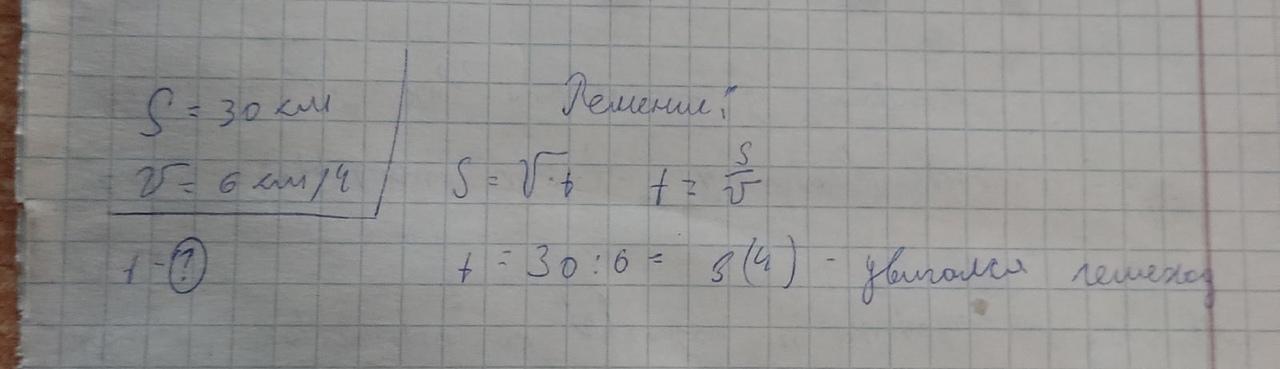 S = 30 км
Решение:
v = 6 км/ч
S = v·t t = S/v
t - ?
t = 30 : 6 = 5 (ч) - двигался пешеход